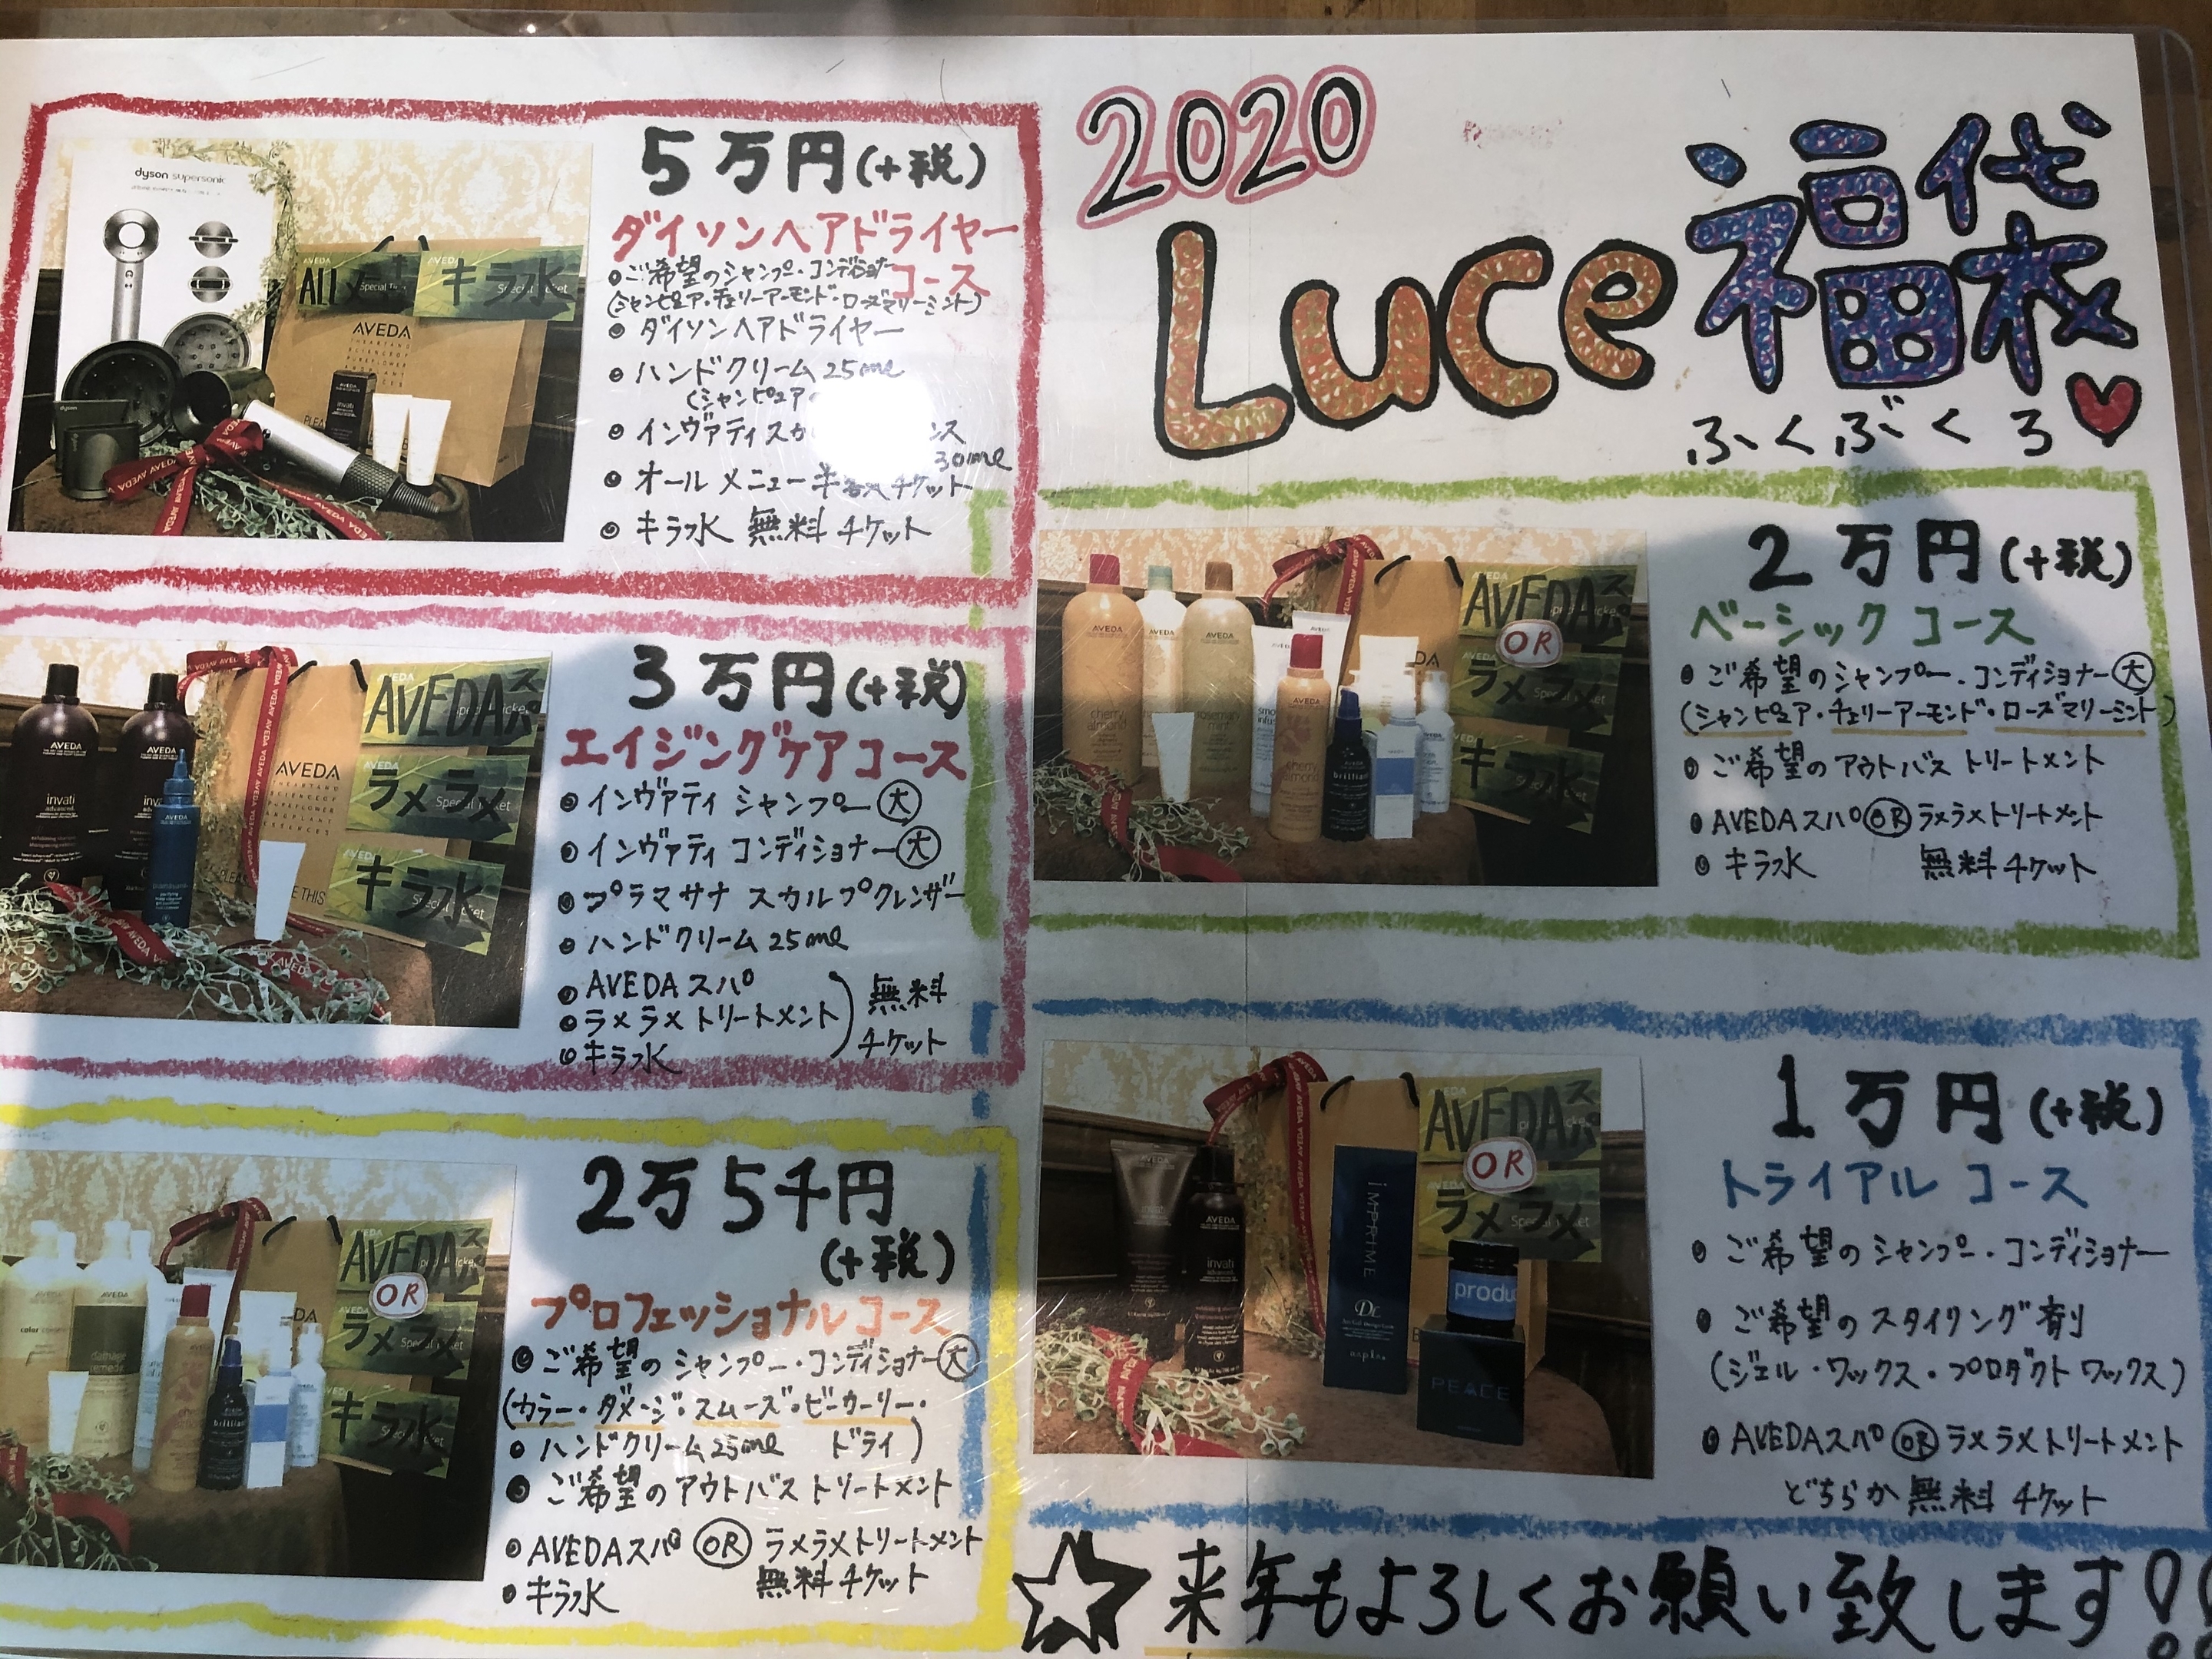 2020
Luce福袋
ふくぶくろ
5万円(+税)
ダイソンヘアドライヤー
コース
ご希望のシャンプー・コンディショナー
(シャンピュア・チェリーアーモンド・ローズマリーミント)
ダイソンヘアドライヤー
ハンドクリーム 25ml
(シャンピュア
インヴァティスカ ンス
30ml
オールメニュー半額チケット
キラ水 無料チケット
dyson supersonic
AVEDA
ALLメニュー
Special Ticket
キラ水
AVEDA
invati
3万円(+税)
エイジングケアコース
インヴァティ シャンプー 大
インヴァティ コンディショナー 大
プラマサナ スカルプクレンザー
ハンドクリーム 25ml
AVEDAスパ
ラメラメトリートメント
キラ水
無料
チケット
AVEDAスパ
ラメラメ
キラ水
Special Ticket
AVEDA
invati
advanced
2万5千円
(+税)
プロフェッショナルコース
ご希望のシャンプー・コンディショナー 大
(カラー・ダメージ・スムーズ・ビーカーリー・
ドライ)
ハンドクリーム 25ml
ご希望のアウトバストリートメント
AVEDAスパ OR ラメラメトリートメント
キラ水 無料チケット
AVEDAスパ
OR
ラメラメ
キラ水
damage
remedy
brilliant
2万円(+税)
ベーシックコース
ご希望のシャンプー・コンディショナー 大
(シャンピュア・チェリーアーモンド・ローズマリーミント)
ご希望のアウトバストリートメント
AVEDAスパ OR ラメラメトリートメント
キラ水 無料チケット
AVEDAスパ
OR
ラメラメ
キラ水
AVEDA
cherry
almond
rosemary
mint
brilliant
1万円(+税)
トライアルコース
ご希望のシャンプー・コンディショナー
ご希望のスタイリング剤
(ジェル・ワックス・プロダクトワックス)
AVEDAスパ OR ラメラメトリートメント
どちらか無料チケット
AVEDAスパ
OR
ラメラメ
AVEDA
invati
IMPRIME
produ
PEACE
来年もよろしくお願い致します!!